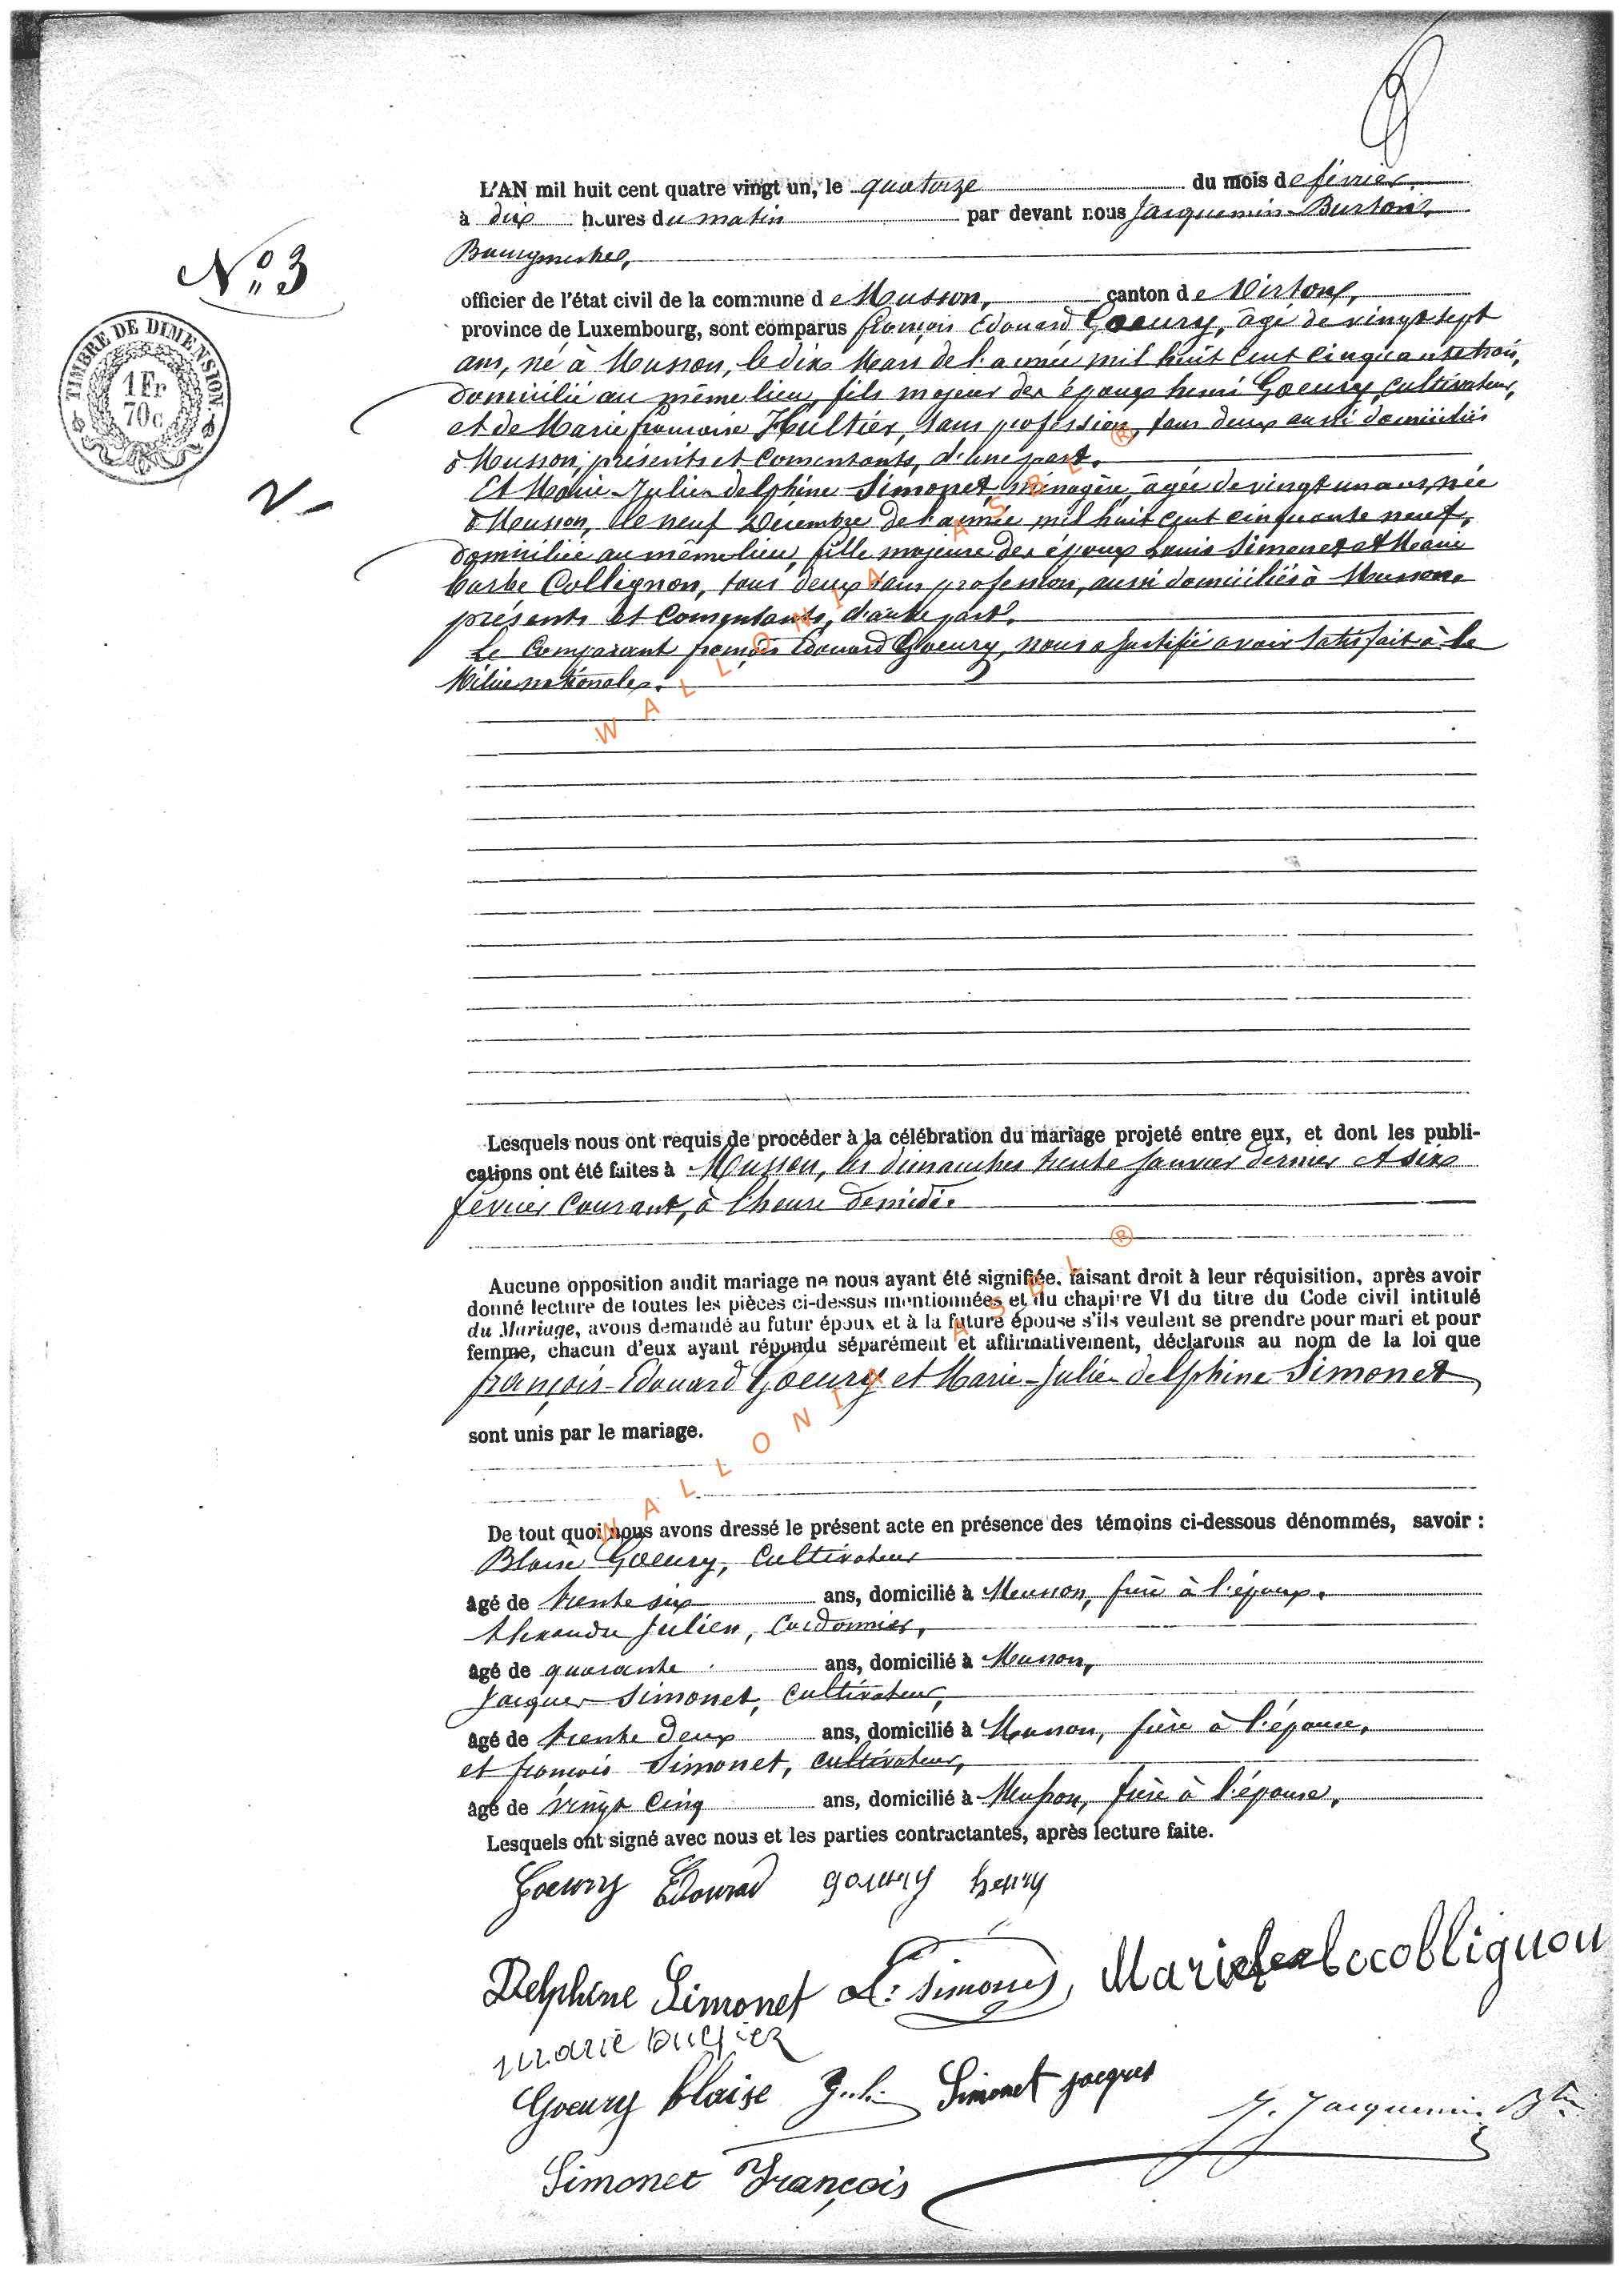 L'AN mil huit cent quatre vingt un, le quatorze du mois de février,
à dix heures du matin par devant nous Jacquemin-Burton,
Bourgmestre,
N° 3
officier de l'état civil de la commune de Musson, canton de Virton,
province de Luxembourg, sont comparus françois Edouard Goeury, âgé de vingt sept
TIMBRE DE DIMENSION.
1 Fr
70 c
ans, né à Musson, le dix Mars de l'année mil huit cent cinquante trois,
domicilié au même lieu, fils majeur des époux henri Goeury, cultivateur,
et de Marie françoise Hultier, sans profession, tous deux aussi domiciliés
à Musson, présents et consentants, d'une part.
Et Marie-Julie-delphine Simonet, ménagère, âgée de vingt un ans, née
à Musson, le neuf Décembre de l'année mil huit cent cinquante neuf,
domiciliée au même lieu, fille majeure des époux Louis Simonet et Marie
barbe Collignon, tous deux sans profession, aussi domiciliés à Musson,
présents et consentants, d'autre part.
Le Comparant françois Edouard Goeury, nous a justifié avoir satisfait à la
Milice nationale.
WALLONIA ASBL ®
Lesquels nous ont requis de procéder à la célébration du mariage projeté entre eux, et dont les publi-
cations ont été faites à Musson, les dimanches trente Janvier dernier et six
février Courant, à l'heure de midi.
Aucune opposition audit mariage ne nous ayant été signifiée, faisant droit à leur réquisition, après avoir
donné lecture de toutes les pièces ci-dessus mentionnées et du chapitre VI du titre du Code civil intitulé
du Mariage, avons demandé au futur époux et à la future épouse s'ils veulent se prendre pour mari et pour
femme, chacun d'eux ayant répondu séparément et affirmativement, déclarons au nom de la loi que
françois-Edouard Goeury et Marie-Julie-delphine Simonet
sont unis par le mariage.
WALLONIA ASBL ®
De tout quoi nous avons dressé le présent acte en présence des témoins ci-dessous dénommés, savoir :
Blaise Goeury, Cultivateur
âgé de trente six ans, domicilié à Musson, frère à l'époux.
Alexandre Julien, Cordonnier,
âgé de quarante ans, domicilié à Musson,
Jacques Simonet, Cultivateur,
âgé de trente deux ans, domicilié à Musson, frère à l'épouse,
et françois Simonet, cultivateur,
âgé de vingt cinq ans, domicilié à Musson, frère à l'épouse.
Lesquels ont signé avec nous et les parties contractantes, après lecture faite.
Goeury Edouard goeury henry
Delphine Simonet L. Simonet
marie
Goeury blaise Simonet jacques
J. Jacquemin Btn
Simonet François